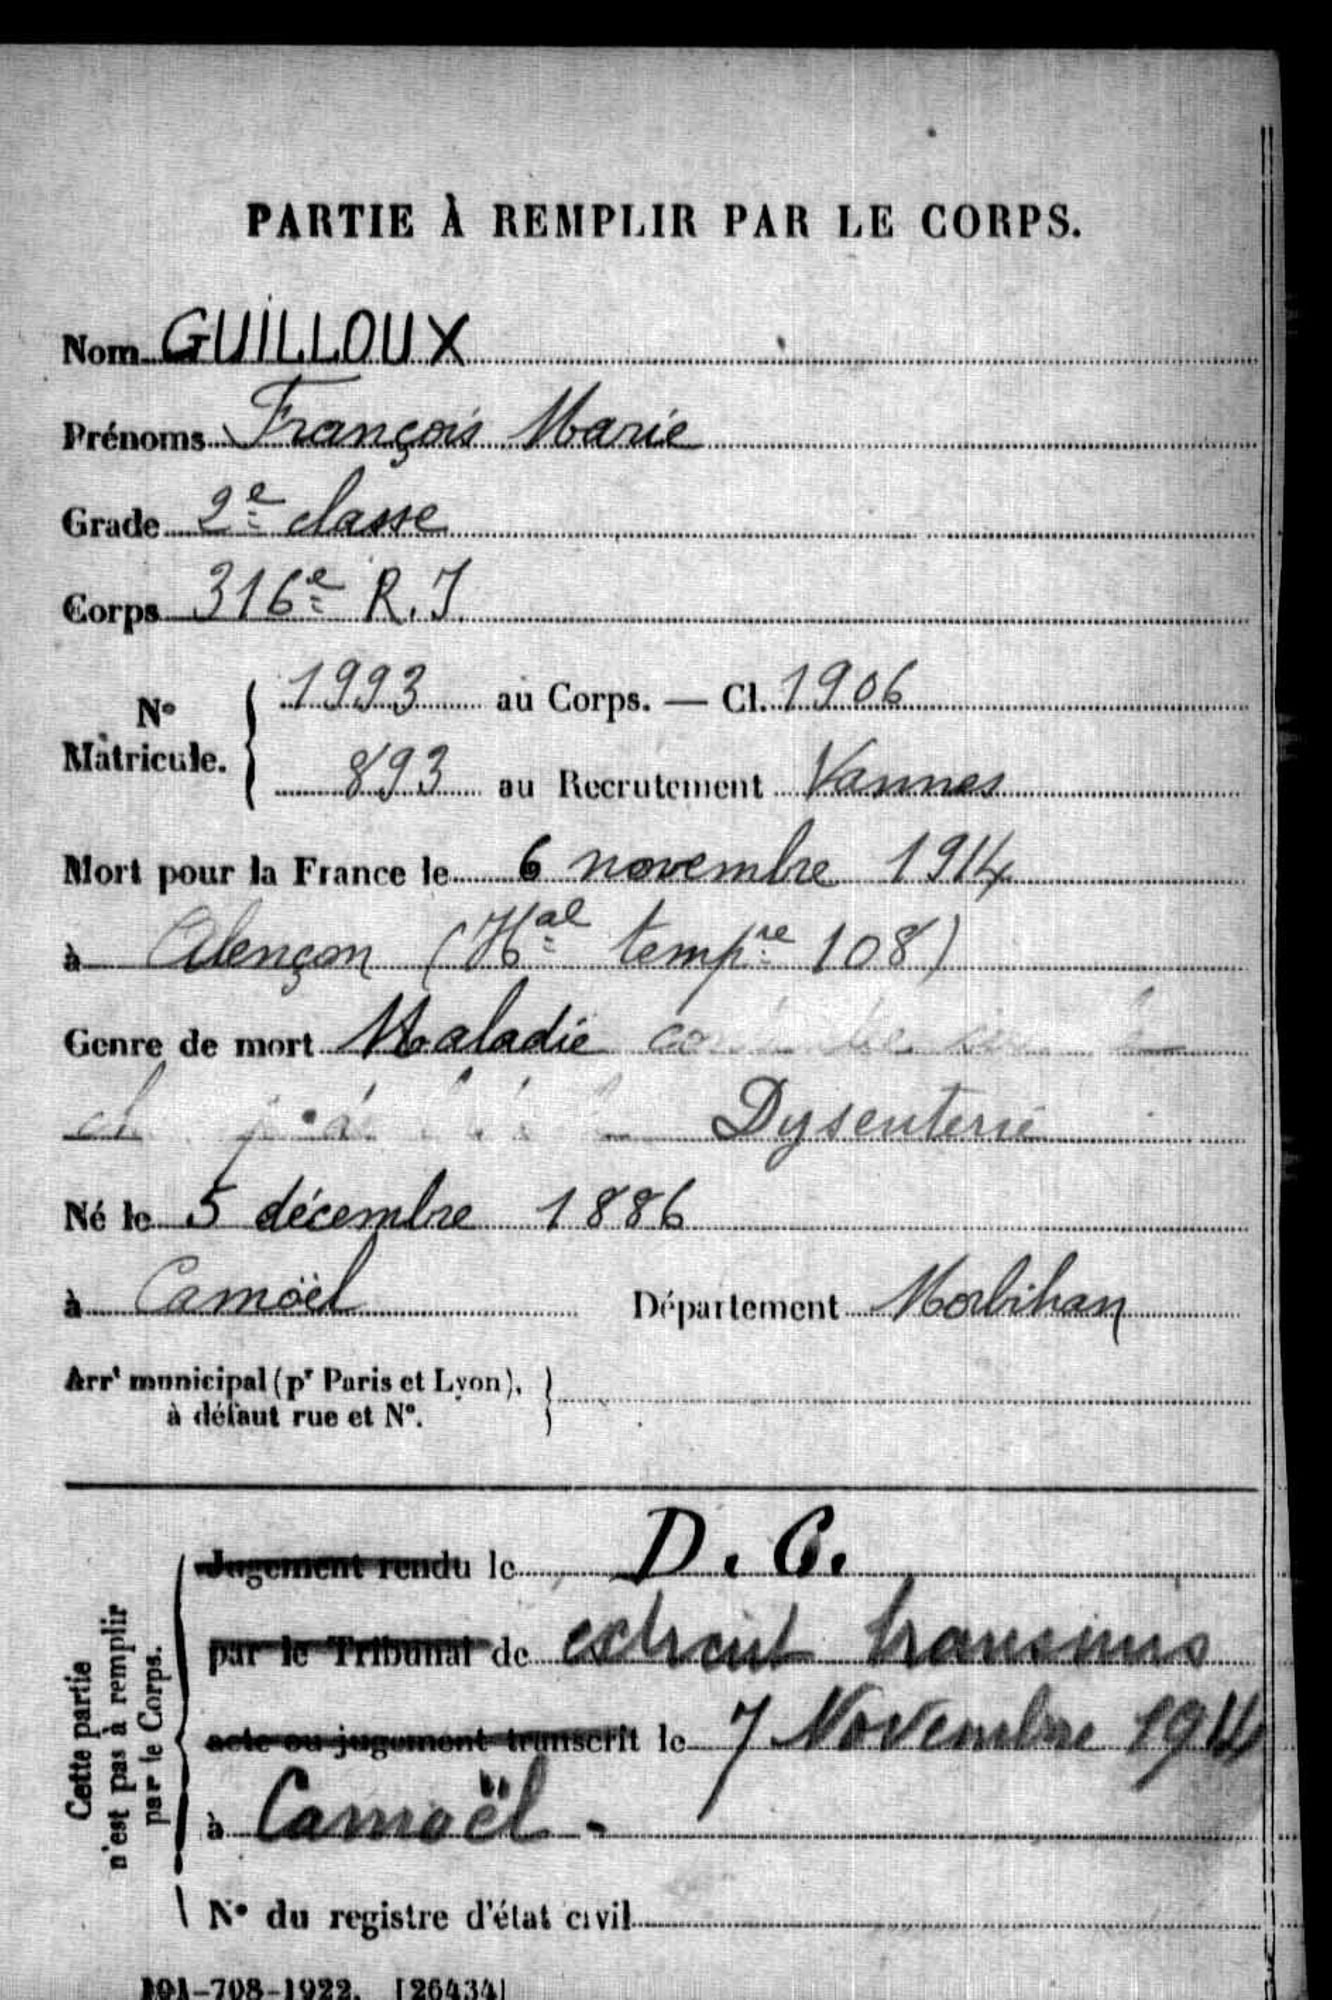 PARTIE À REMPLIR PAR LE CORPS.
Nom GUILLOUX
Prénoms François Marie
Grade 2e classe
Corps 316e R.I.
N° Matricule. 1993 au Corps. — Cl. 1906
893 au Recrutement Vannes
Mort pour la France le 6 novembre 1914
à Alençon (Hal tempre 108)
Genre de mort Maladie
Dysenterie
Né le 5 décembre 1886
à Camoël Département Morbihan
Arrt municipal (pr Paris et Lyon),
à défaut rue et N°.
Cette partie
n'est pas à remplir
par le Corps.
Jugement rendu le D. C.
par le Tribunal de extrait transmis
acte ou jugement transcrit le 7 Novembre 1914
à Camoël -
N° du registre d'état civil
101-708-1922. [26434]